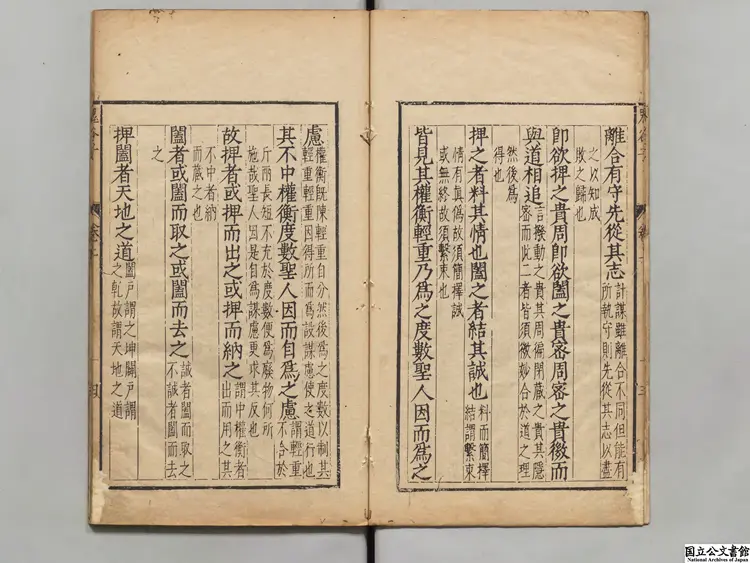 離合有守先從其志計謀雖離合不同但能有
所執守則先從其志以盡
之以知成
敗之歸也
即欲捭之貴周即欲闔之貴密周密之貴微而
與道相追言撥動之貴其周徧閉藏之貴其隱
密而此二者皆須微妙合於道之理
然後為
得也
捭之者料其情也闔之者結其誠也料而簡擇
結謂繫束
情有真偽故須簡擇誠
或無終故須繫束也
皆見其權衡輕重乃為之度數聖人因而為之
慮權衡既陳輕重自分然後為之度數以制其
輕重輕重因得所而為設謀慮使之道行也
其不中權衡度數聖人因而自為之慮謂輕重
不合於
斤兩長短不充於度數便為廢物何所
施哉聖人因是自為謀慮更求其反也
故捭者或捭而出之或捭而納之謂中權衡者
出而用之其
不中者納
而藏之也
闔者或闔而取之或闔而去之誠者闔而取之
不誠者闔而去
之
捭闔者天地之道闔戶謂之坤闢戶謂
之乾故謂天地之道
鬼谷子
卷上
四
国立公文書館
National Archives of Japan